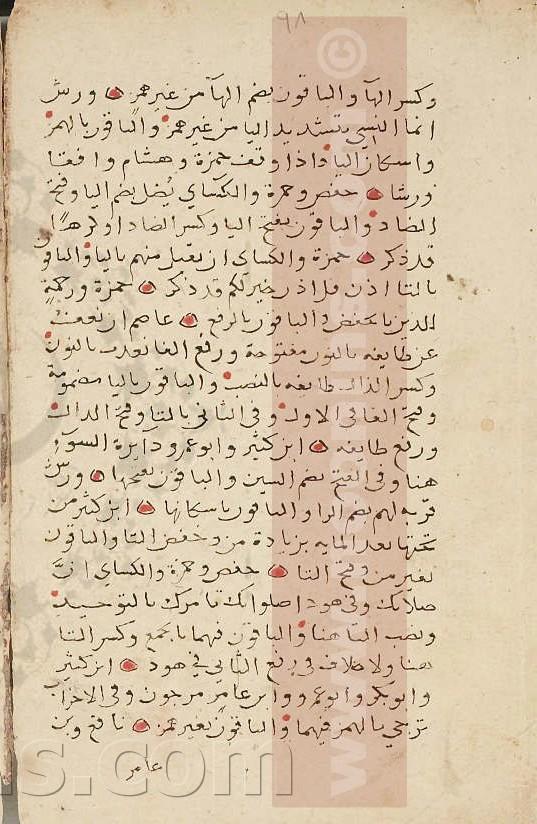 ٩٨
وكسر الها والباقون بضم الهآ من غير همز ورش
انما النسي بتشديد اليا من غير همز والباقون بالهمز
واسكان اليا واذا وقف حمزة وهشام وافقا
ورشا حفص وحمزة والكساي يُضل بضم اليا وفتح
الضاد والباقون بفتح اليا وكسر الضاد او كرهًا
قد ذكر حمزة والكساي ان يقبل منهم باليا والباقو
بالتا اذن قل اذن خير لكم قد ذكر حمزة ورحمةٍ
للذين بالخفض والباقون بالرفع عاصم ان نعف
عن طايفه بالنون مفتوحة ورفع الفا نعذب بالنون
وكسر الذال طايفه بالنصب والباقون باليا مضمومة
وفتح الفا في الاول وفى الثانى بالتا وفتح الذال
ورفع طايفه ابن كثير وابو عمرو دايرة السوء
هنا وفى الفتح بضم السين والباقون بفتحها ورش
قربه لهم بضم الرا والباقون باسكانها ابن كثير من
تحتها بعد المايه بزيادة من وخفض التا والباقون
بغير من وفتح التا حفص وحمزة والكساي انَّ
صلاتك وفى هود اصلواتك تامرك بالتوحيد
ونصب التا هنا والباقون فيهما بالجمع وكسر التا
هنا ولا خلاف في رفع التاء في هود ابن كثير
وابو بكر وابو عمرو وابن عامر مرجون وفى الاحزاب
ترجي بالهمز فيهما والباقون بغير همز نافع وبن
عامر